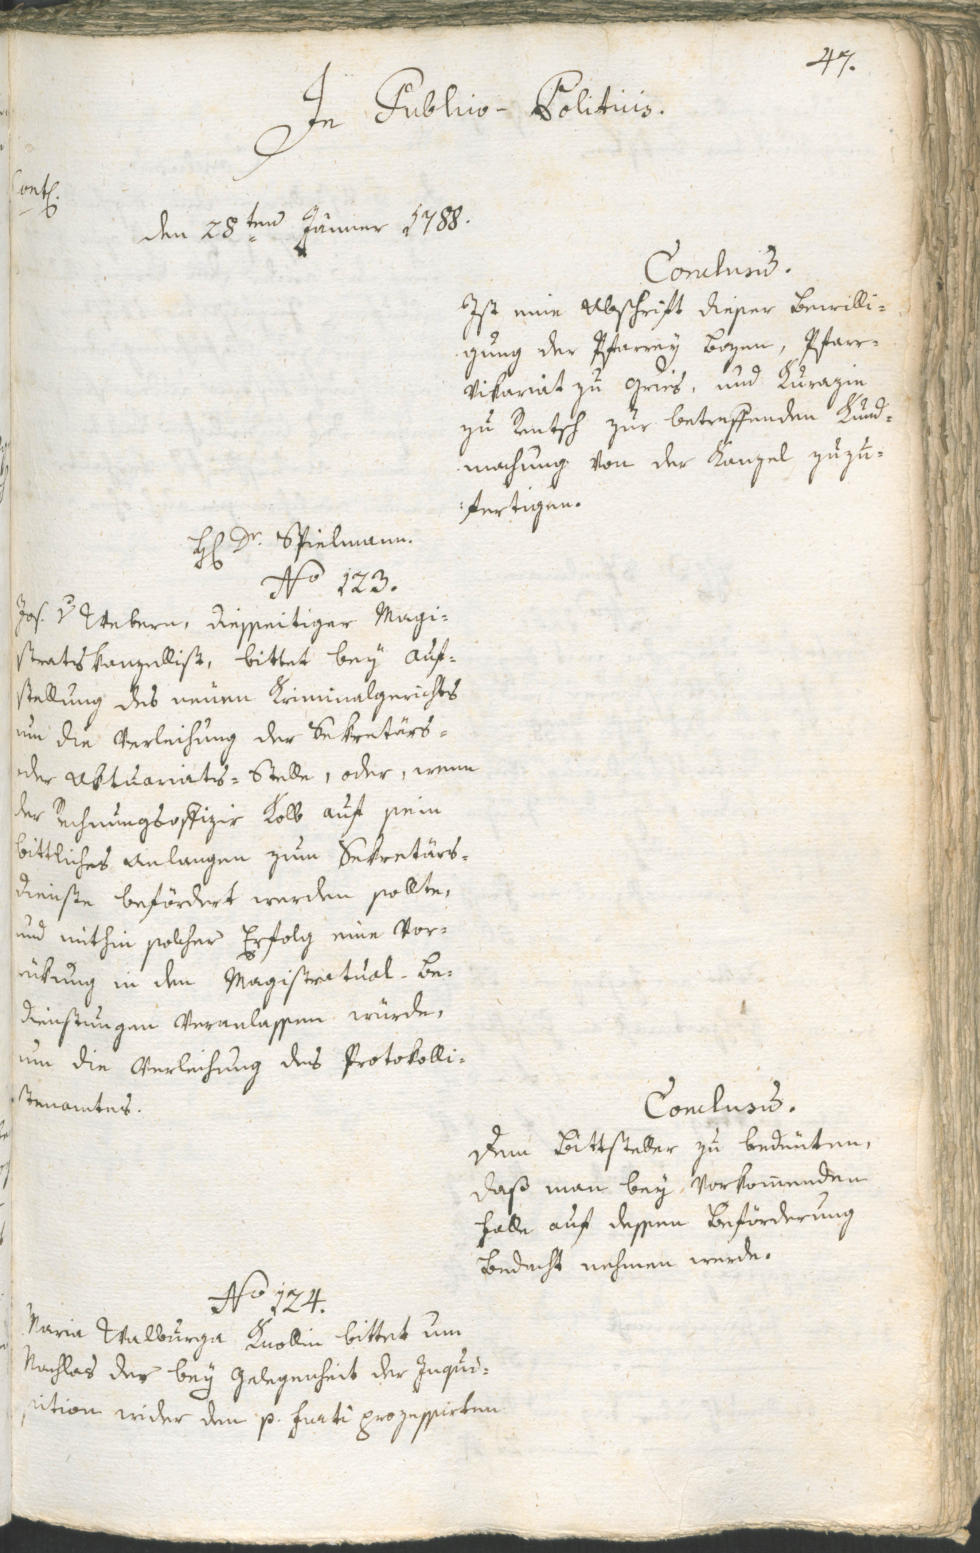 47.
In Publico-Politicis.
Cont.
den 28ten Jänner 1788.
Conclusum.
Ist eine Abschrift dieser Bewilli=
gung der Pfarrey Bozen, Pfarr=
Vikariat zu Gries, und Kurazie
zu Rentsch zur betreffenden Kund=
machung von der Kanzel zuzu=
fertigen.
H. Dr. Spielmann.
No 123.
Jos. v Webern, diesseitiger Magi=
stratskanzellist, bittet bey Auf=
stellung des neuen Kriminalgerichts
um die Verleihung der Sekretärs=
oder Aktuariats=Stelle, oder, wenn
der Rechnungsoffizir Kolb auf sein
bittliches Anlangen zum Sekretärs=
dienste befördert werden sollte,
und mithin solcher Erfolg eine Vor=
rükung in den Magistratual-Be=
dienstungen veranlassen würde,
um die Verleihung des Protokolli=
stenamtes.
Conclusum.
Dem Bittsteller zu bedeuten,
daß man bey vorkom̅enden
Falle auf dessen Beförderung
Bedacht nehmen werde.
No 124.
Maria Walburga Knollin bittet um
Nachlas der bey Gelegenheit der Inqui=
sition wider den p. prozessirten